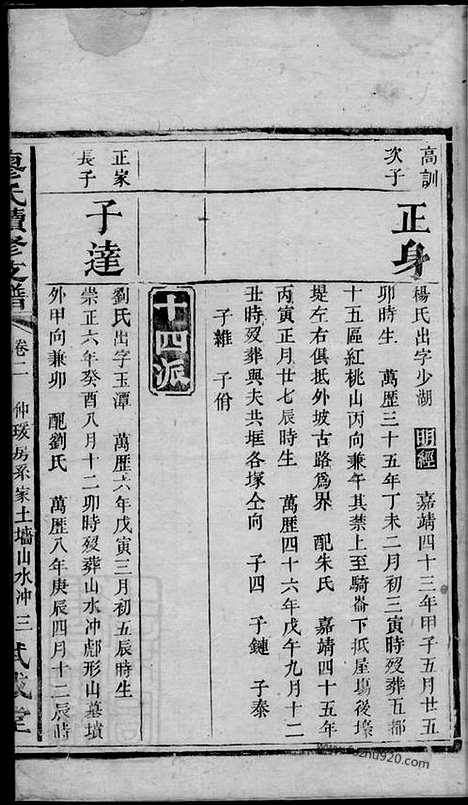 高訓
次子
正身
楊氏出字少湖 明經 嘉靖四十三年甲子五月廿五
卯時生 萬歷三十五年丁未二月初三寅時歿葬五都
十五區紅桃山丙向兼午其禁上至騎崙下抵屋場後墚
堤左右俱抵外坡古路為界 配朱氏 嘉靖四十五年
丙寅正月廿七辰時生 萬歷四十六年戊午九月十二
丑時歿葬與夫共堆各塚仝向 子四 子鏈 子泰
子維 子佾
十四派
正家
長子
子達
劉氏出字玉潭 萬歷六年戊寅三月初五辰時生
崇正六年癸酉八月十二卯時歿葬山水冲䣊形山墓墳
外甲向兼卯 配劉氏 萬歷八年庚辰四月十二辰時
廖氏續修支譜 卷二 仲瑗房系家土墻山水冲 三 武威堂